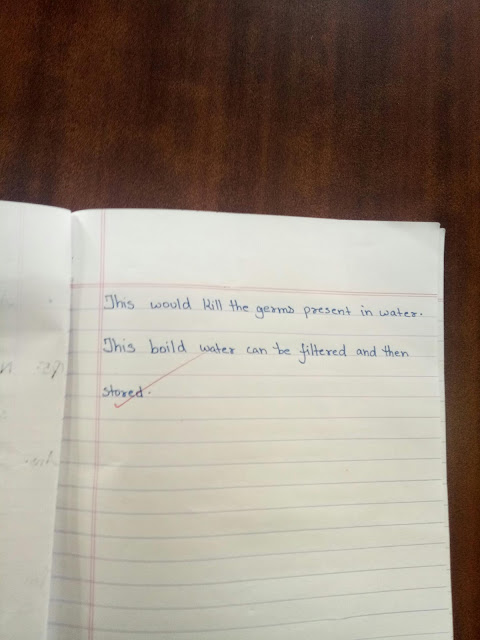 This would kill the germs present in water.
This boild water can be filtered and then
stored.